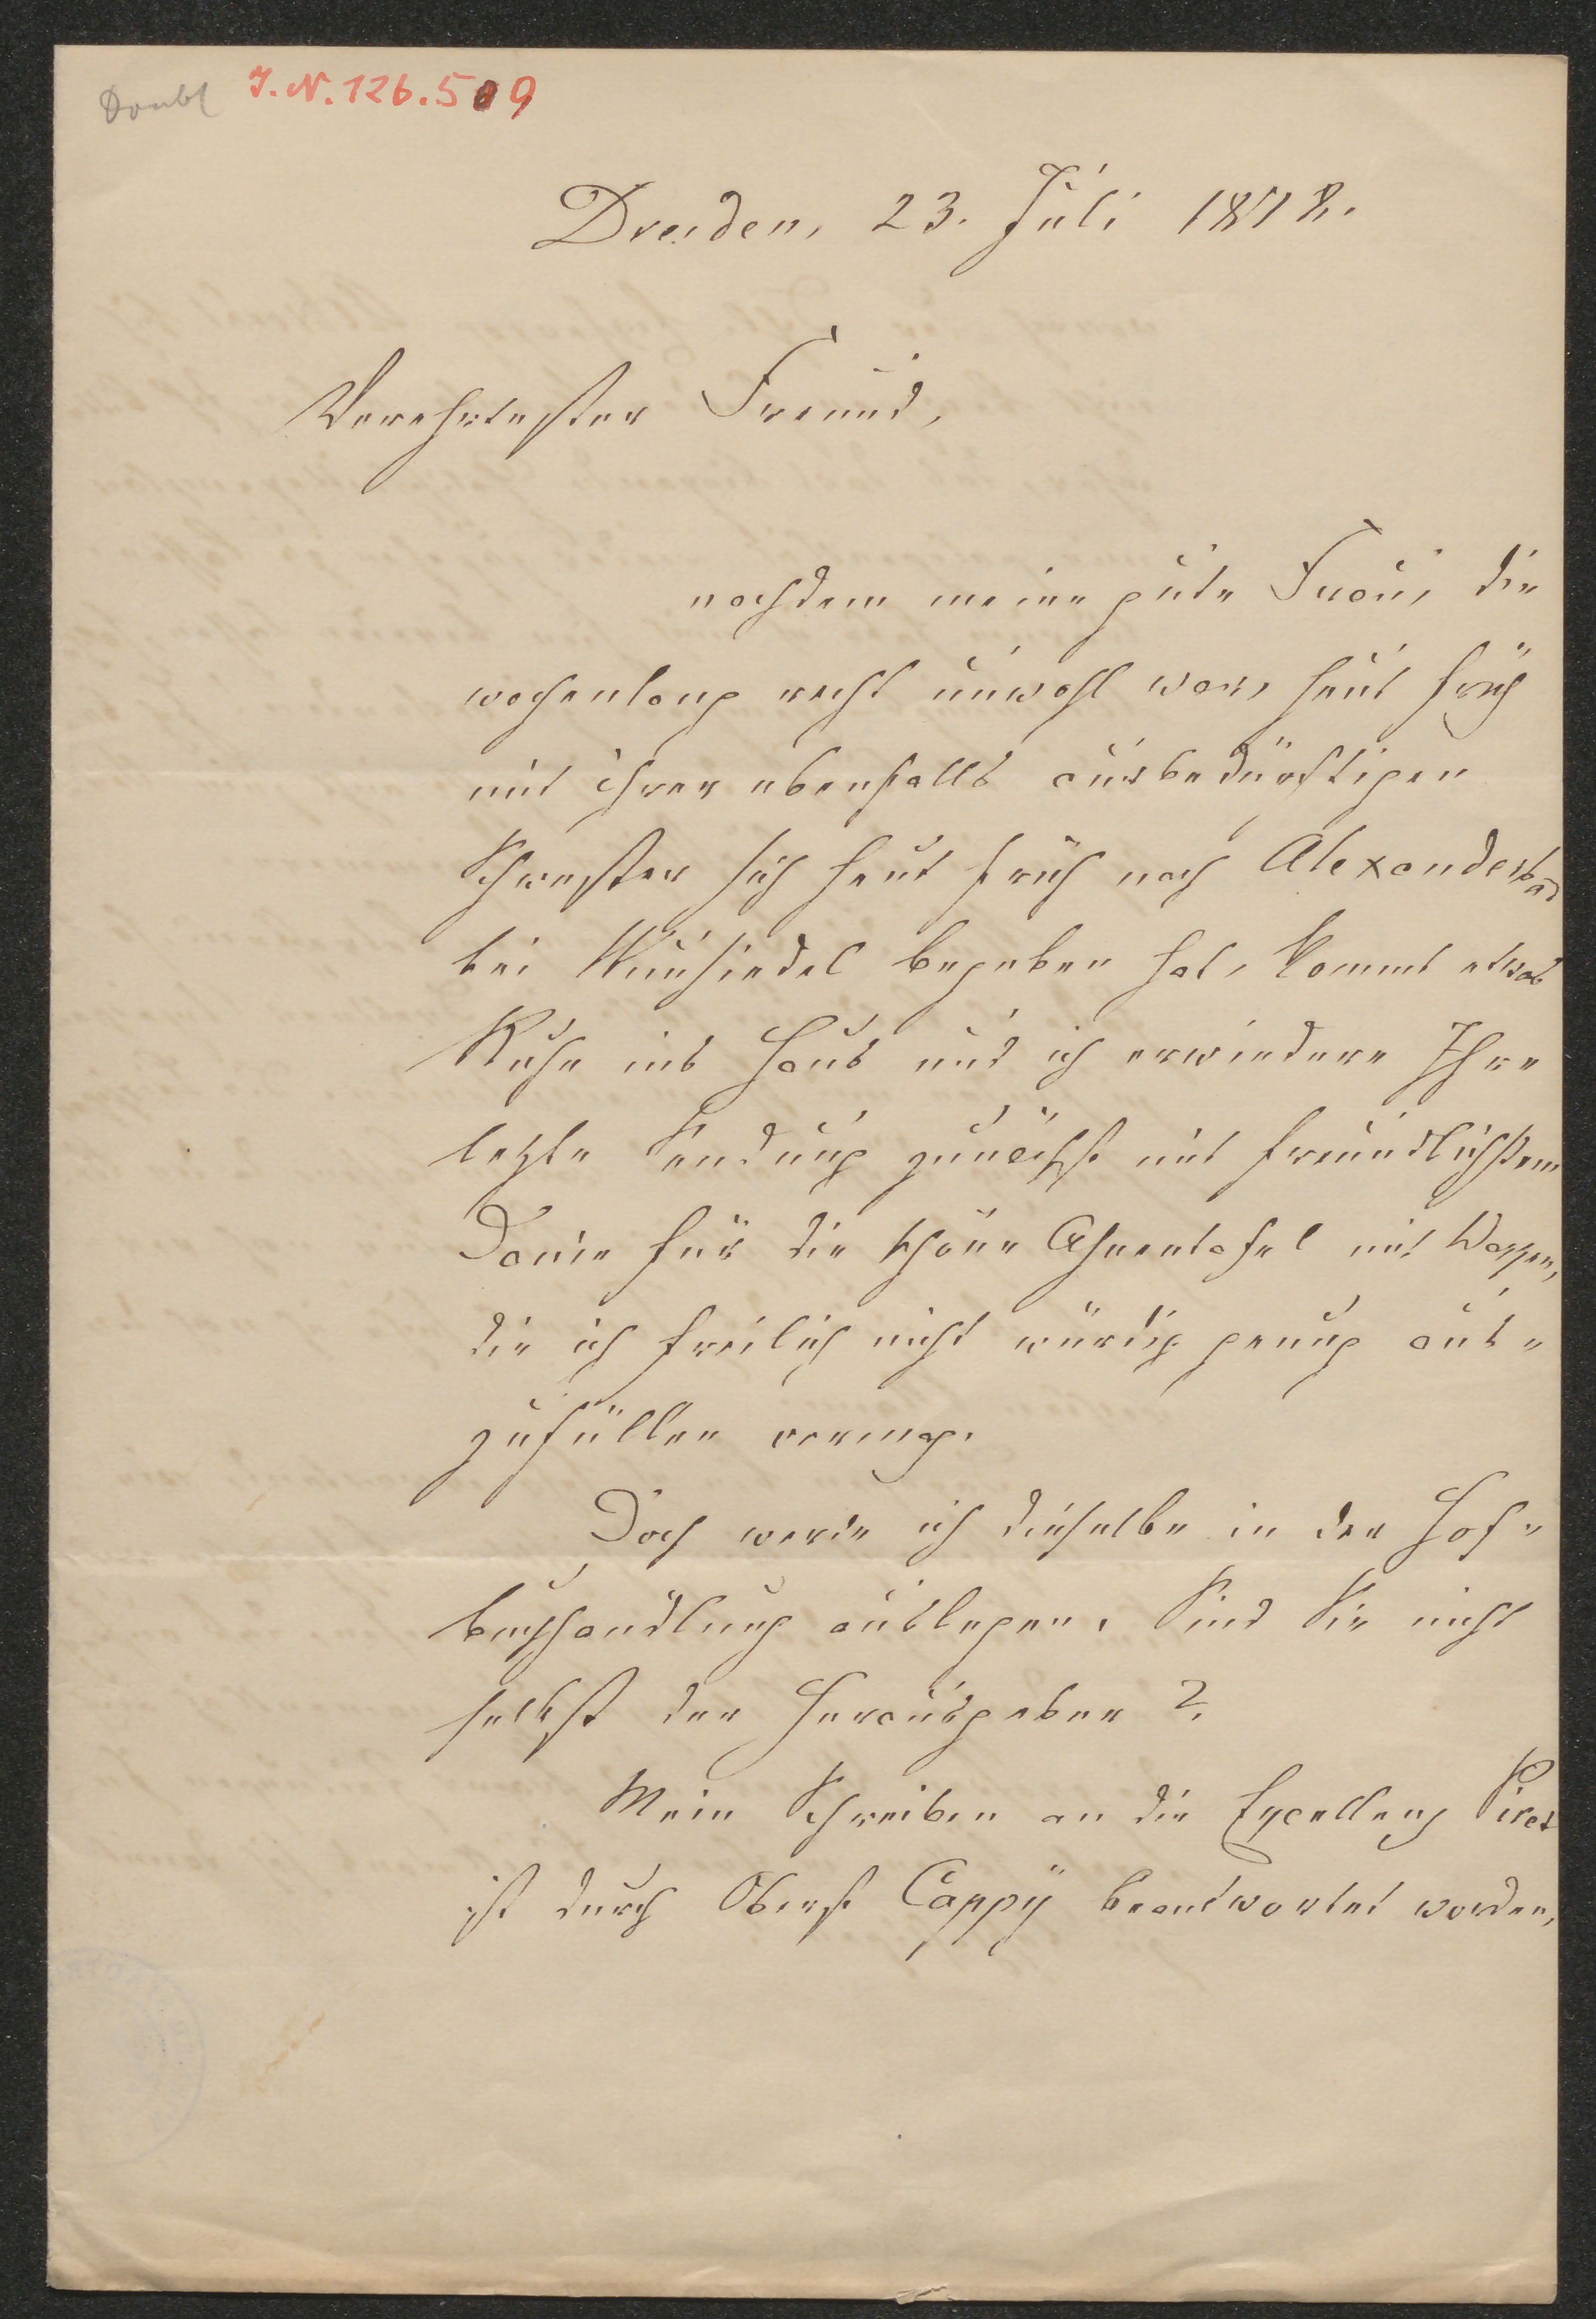 Doubl J. N. 126.509
Dresden, 23. Juli 1878.
Verehrtester Freund,
nachdem meine gute Frau, die
wochenlang recht unwohl war, heut früh
mit ihrer ebenfalls curbedürftigen
Schwester sich heut früh nach Alexandersbad
bei Wunsiedel begeben hat, kommt etwas
Ruhe ins Haus und ich erwiedere Ihre
letzte Sendung zunächst mit freundlichstem
Danke für die schöne Ahnentafel mit Wappen,
die ich freilich nicht würdig genug aus-
zufüllen vermag.
Doch werde ich dieselbe in der Hof-
buchhandlung auslegen. Sind Sie nicht
selbst der Herausgeber?
Mein Schreiben an die Excellenz Piret
ist durch Oberst Cappÿ beantwortet worden,